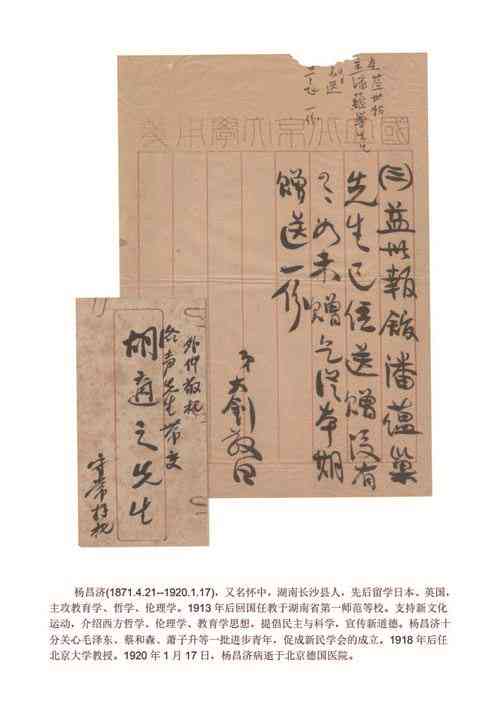 國立北京大學用箋
(三)益世報館潘蘊巢
先生已经送赠没有
如未赠乞從本期
赠送一份
弟大釗敬白
外件敬托
先生带交
胡適之先生
守常拜托
杨昌济(1871.4.21--1920.1.17)，又名怀中，湖南长沙县人，先后留学日本、英国，
主攻教育学、哲学、伦理学。1913年后回国任教于湖南省第一师范等校。支持新文化
运动，介绍西方哲学、伦理学、教育学思想，提倡民主与科学，宣传新道德。杨昌济十
分关心毛泽东、蔡和森、萧子升等一批进步青年，促成新民学会的成立。1918年后任
北京大学教授。1920年1月17日，杨昌济病逝于北京德国医院。